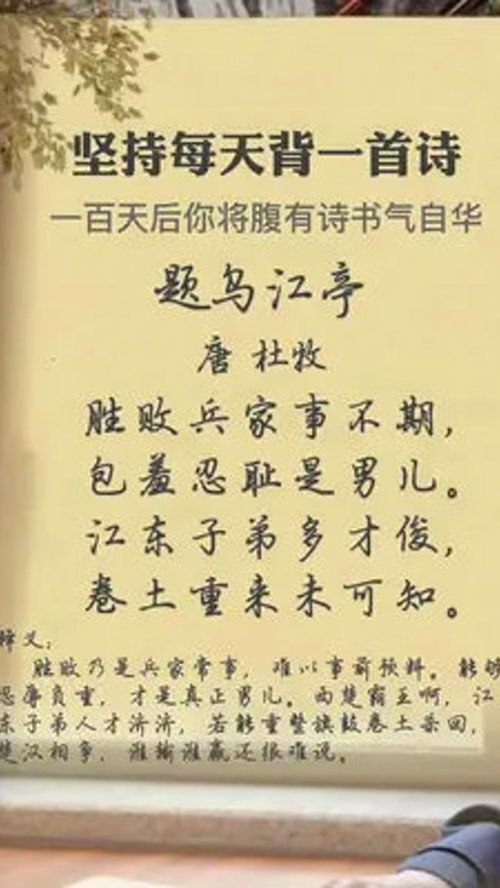 坚持每天背一首诗
一百天后你将腹有诗书气自华
题乌江亭
唐 杜牧
胜败兵家事不期，
包羞忍耻是男儿。
江东子弟多才俊，
卷土重来未可知。
释义：
胜败乃是兵家常事，难以事前预料。能够
忍辱负重，才是真正男儿。西楚霸王啊，江
东子弟人才济济，若能重整旗鼓卷土杀回，
楚汉相争，谁输谁赢还很难说。